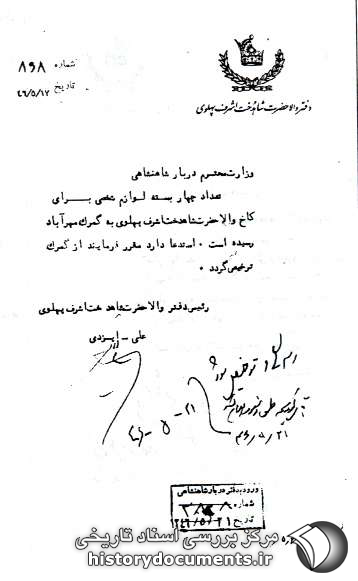 دفتر والاحضرت شاهدخت اشرف پهلوی
شماره ۸۹۸
تاریخ ۴۶/۵/۱۲
وزارت محترم دربار شاهنشاهی
تعداد چهار بسته لوازم شخصی برای
کاخ والاحضرت شاهدخت اشرف پهلوی به گمرک مهرآباد
رسیده است ۰ استدعا دارد مقرر فرمایند از گمرک
ترخیص گردد ۰
رئیس دفتر والاحضرت شاهدخت اشرف پهلوی
علی - ایزدی
ترخیص شود
۲۱ - ۵ - ۴۶
۴۶/۵/۲۱
ورود به دفتر دربار شاهنشاهی
شماره
تاریخ ۱۳۴۶/۵/۲۱
مرکز بررسی اسناد تاریخی
historydocuments.ir